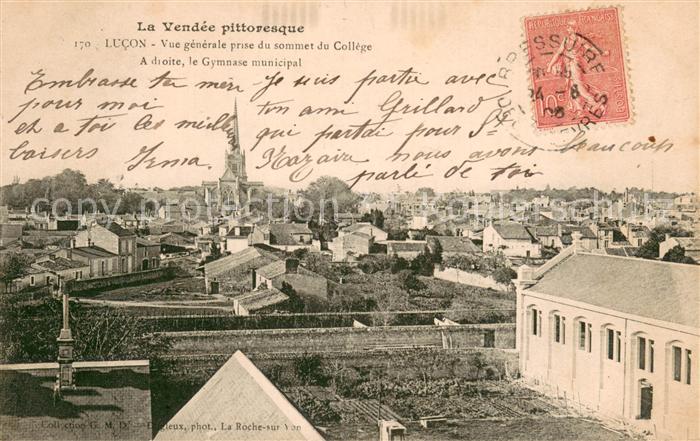 La Vendée pittoresque
170 LUÇON - Vue générale prise du sommet du Collège
A droite, le Gymnase municipal
REPUBLIQUE FRANÇAISE
10
BRESSUIRE
24 -8
SEVRES
Embrasse ta mère
pour moi
et a toi les meill
baisers Irma
Je suis partie avec
ton ami Grillard
qui partai pour St
Nazaire nous avons beaucoup
parle de toi
copyright protection
Collection G. M. D. phot., La Roche-sur Yon